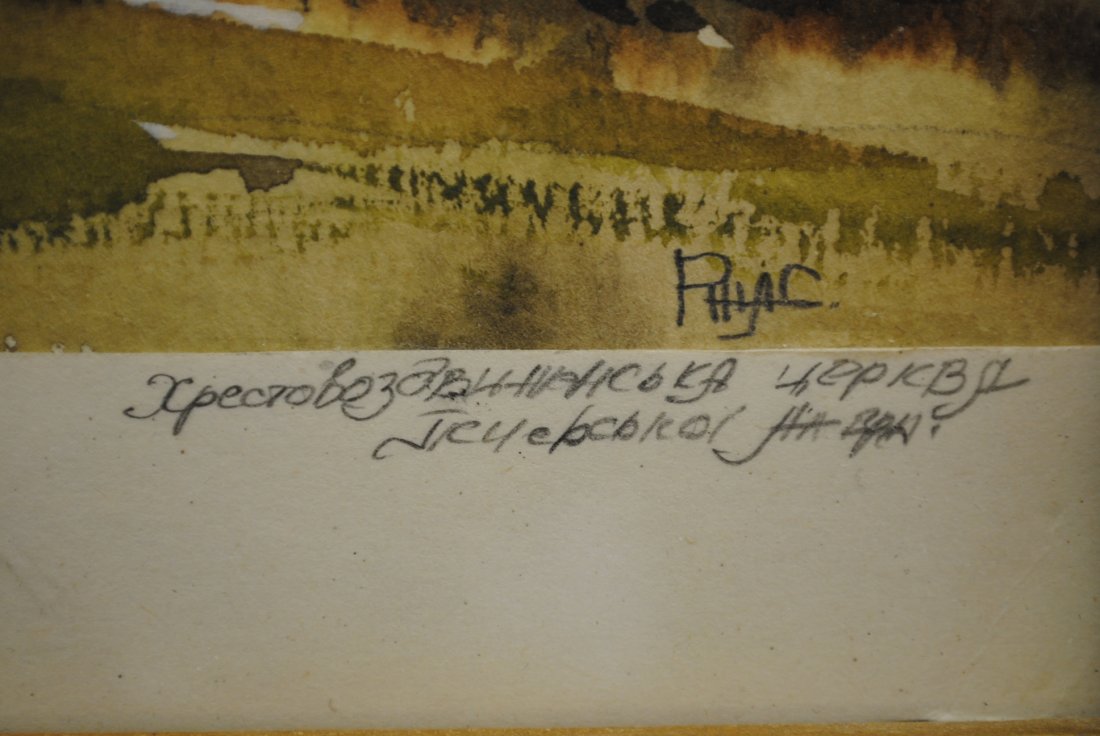 Хрестовоздвиженська церква
Печерської лаври.